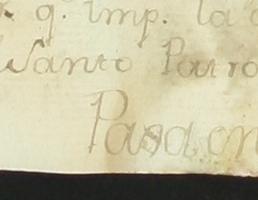 q. imp. la
Santo Patro
Pasaron